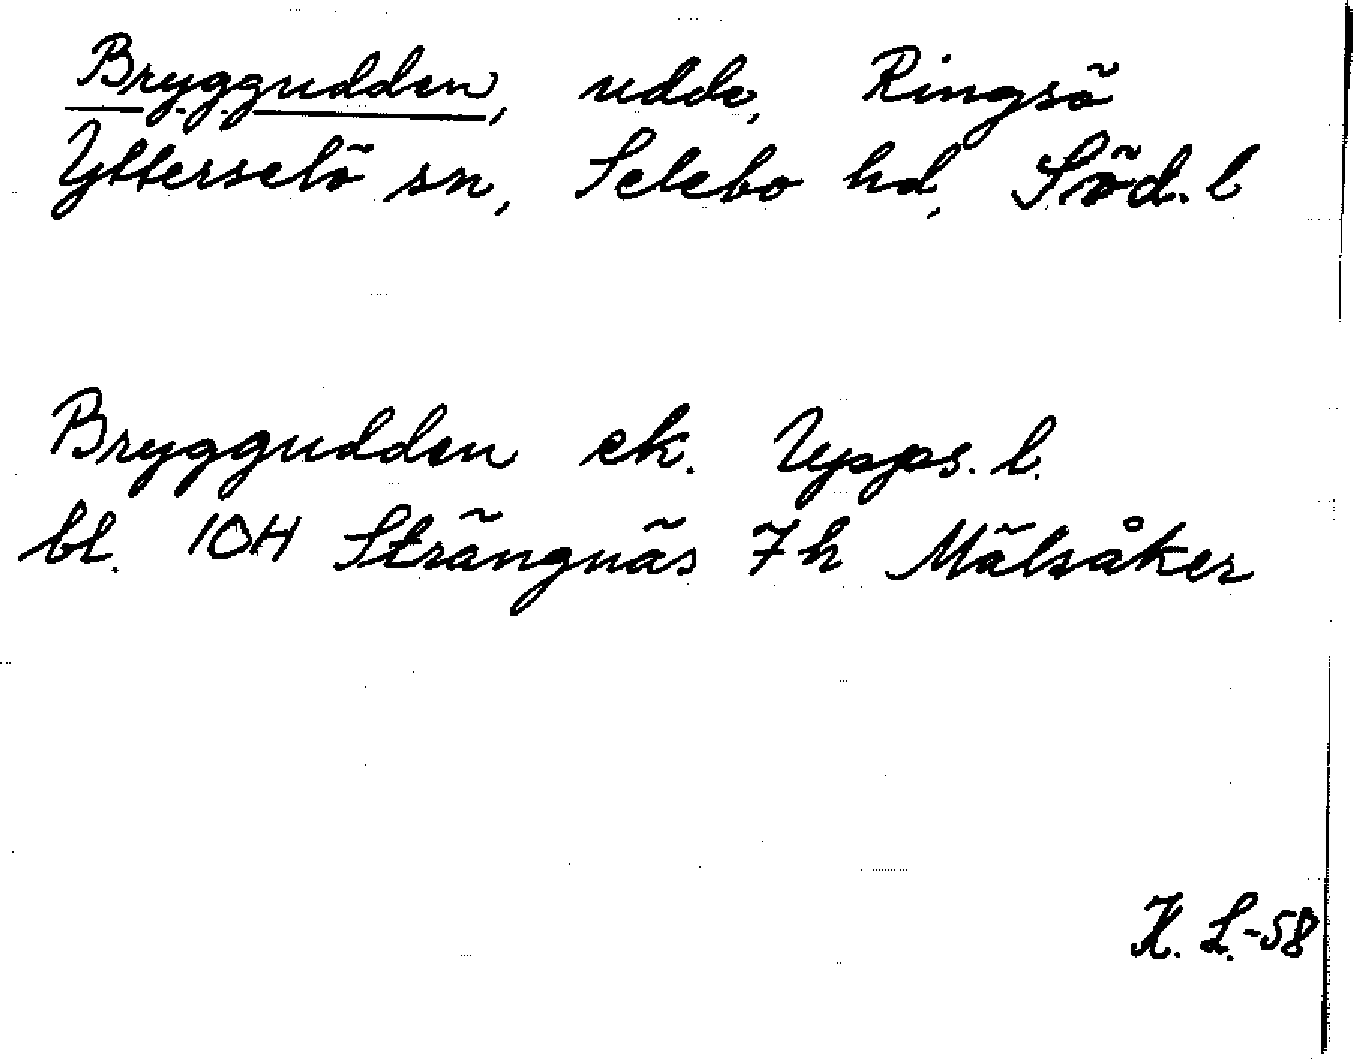 Bryggudden, udde, Ringsö
Ytterselö sn, Selebo hd, Söd. l
Bryggudden ek. Upps. l.
bl. 10H Strängnäs 7h Mälsåker
K. L.-58